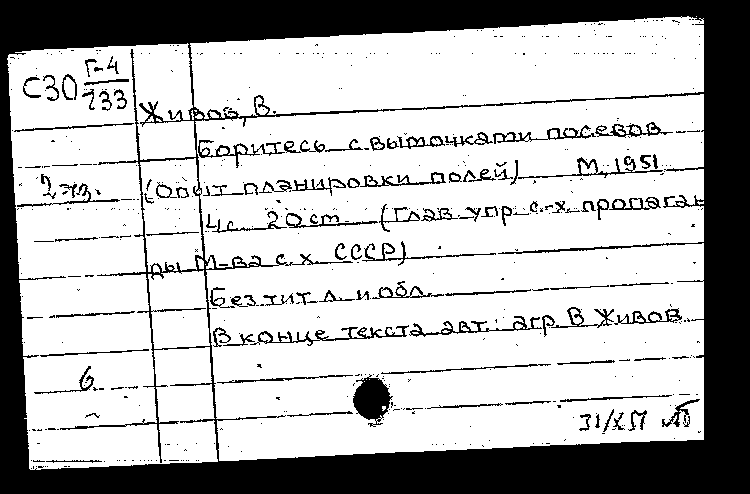 С30 Г-4/233
Живов, В.
Боритесь с выточками посевов
2 экз. (Опыт планировки полей) М, 1951
4 с. 20 ст. (Глав упр. с.-х. пропаган
ды М-ва с. х. СССР)
Без тит л. и обл.
В конце текста авт.: агр. В Живов
6
31/X 51